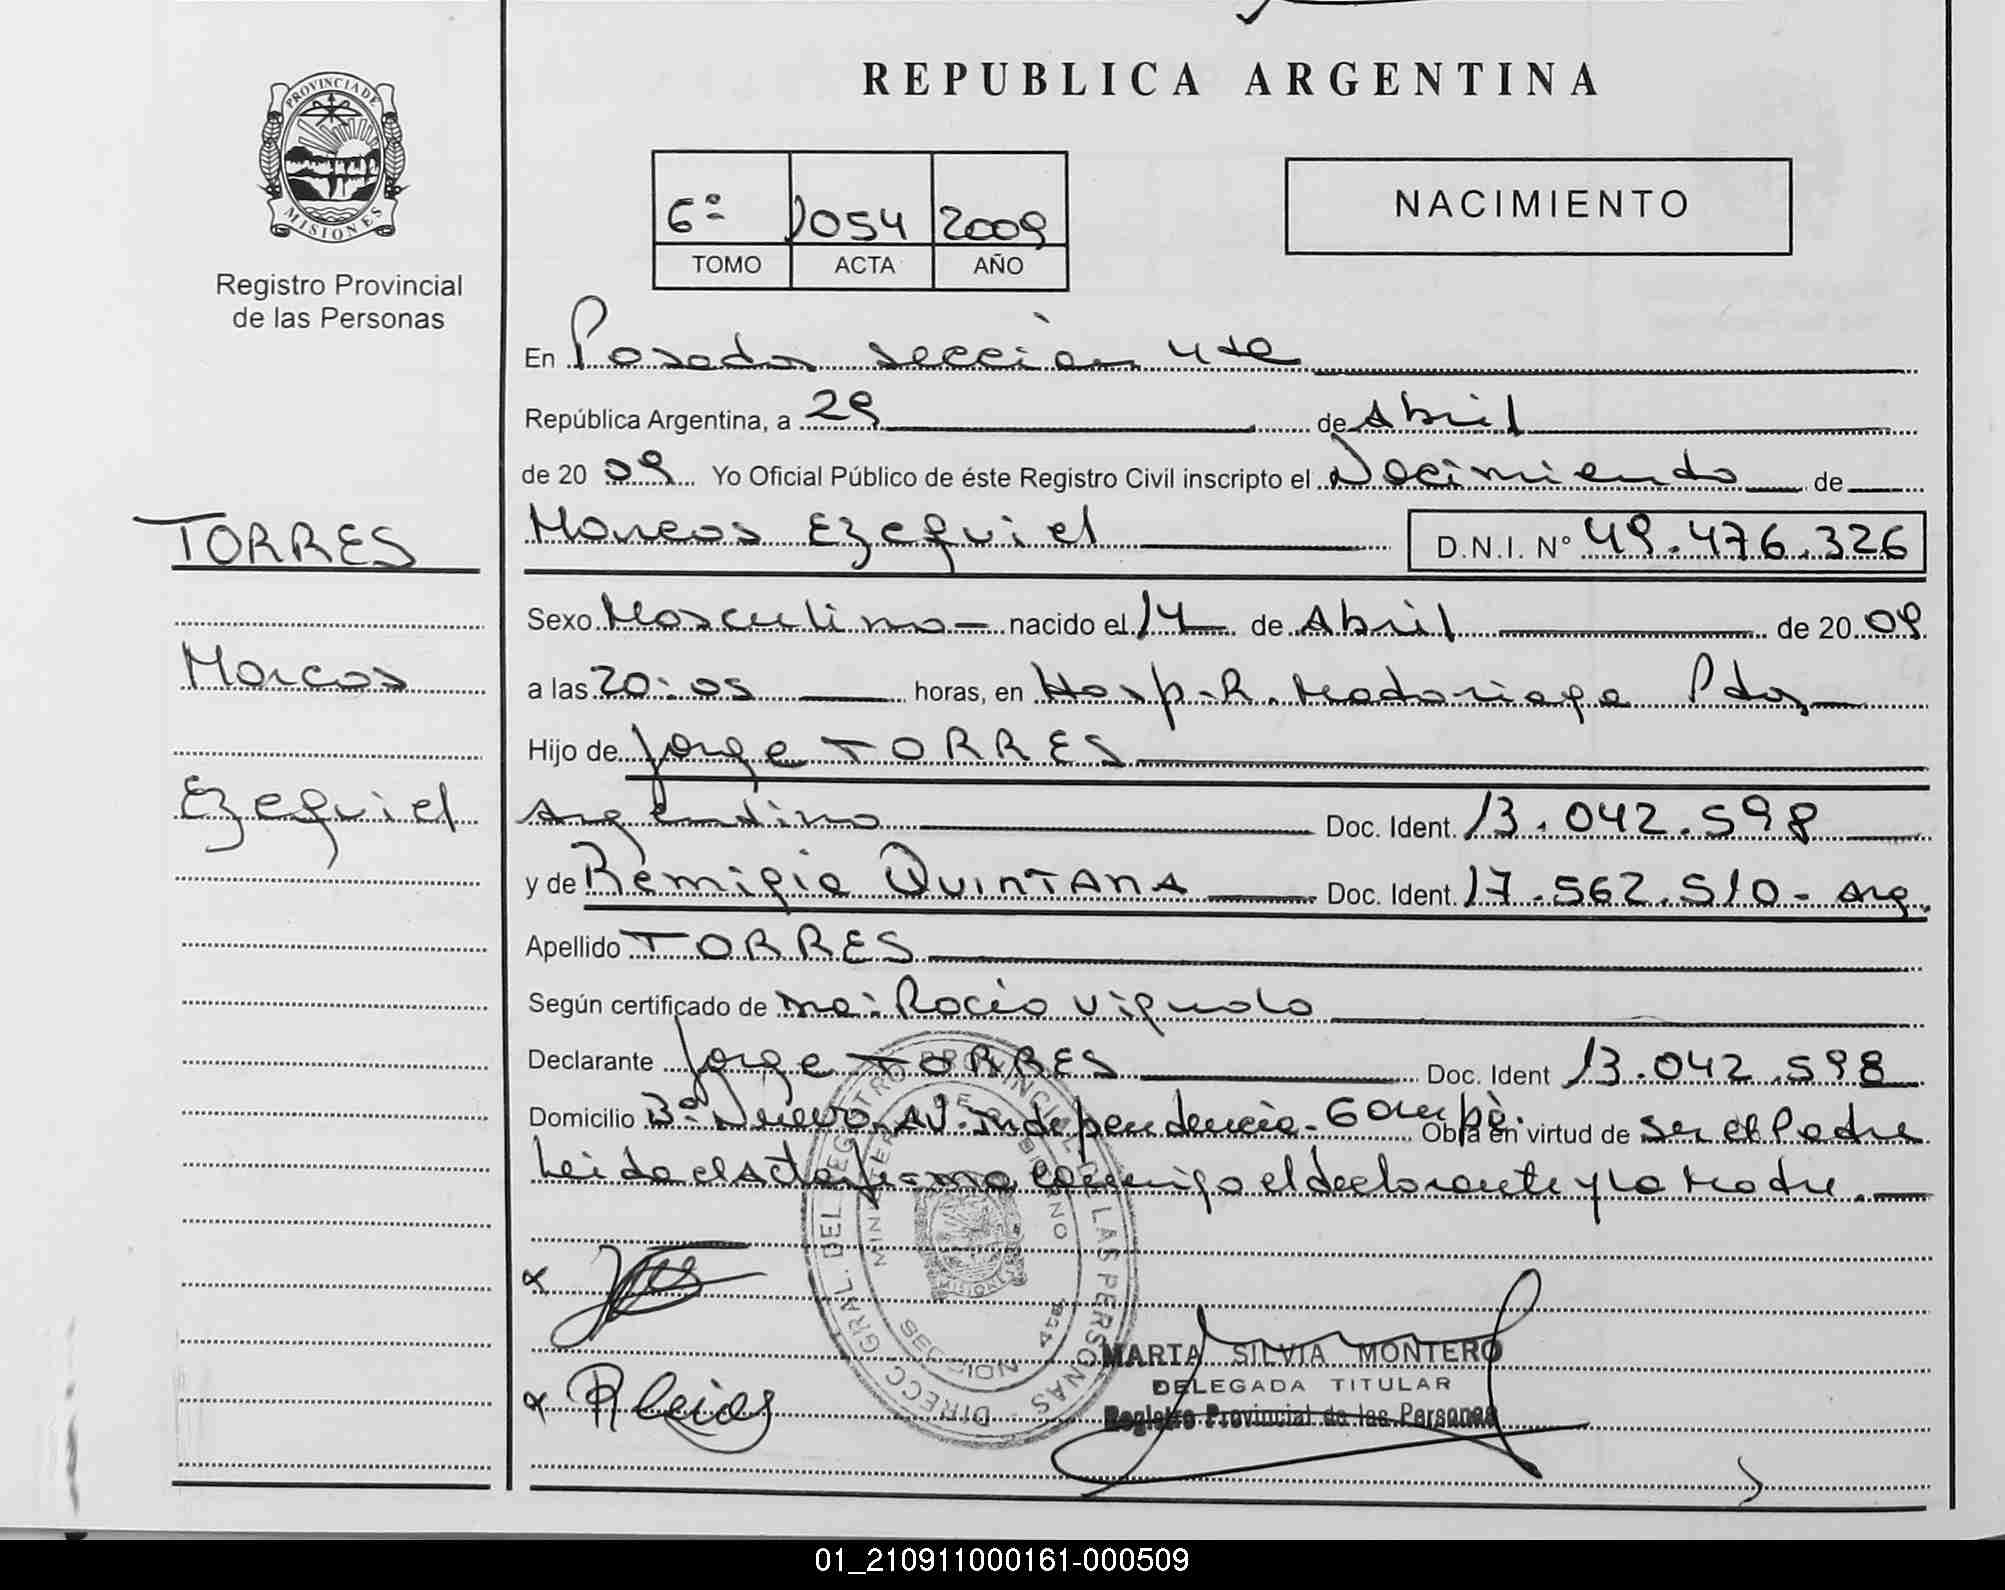 REPUBLICA ARGENTINA
PROVINCIA DE
MISIONES
Registro Provincial
de las Personas
6º 1054 2009
TOMO ACTA AÑO
NACIMIENTO
En Posadas sección 4ta
República Argentina, a 29 de Abril
de 20 09 Yo Oficial Público de éste Registro Civil inscripto el Nacimiento de
TORRES
Marcos Ezequiel D.N.I. Nº 49.476.326
Sexo Masculino nacido el 14 de Abril de 20 09
Marcos
a las 20:05 horas, en Hosp. R. Madariaga Pdas
Hijo de Jorge TORRES
Ezequiel
Argentino Doc. Ident. 13.042.598
y de Remigia QUINTANA Doc. Ident. 17.562.510 - Arg.
Apellido TORRES
Según certificado de Rocio Vignolo
Declarante Jorge TORRES Doc. Ident 13.042.598
Domicilio Bº Nuevo. AV. independencia - Garupá. Obra en virtud de ser el Padre
Leida el Acta firma conmigo el declarante y la Madre.
DIRECC. GRAL. DEL REGISTRO PROVINCIAL DE LAS PERSONAS
MINISTERIO DE GOBIERNO
SECCION 4ta.
MARTA SILVIA MONTERO
DELEGADA TITULAR
Registro Provincial de las Personas
01_210911000161-000509